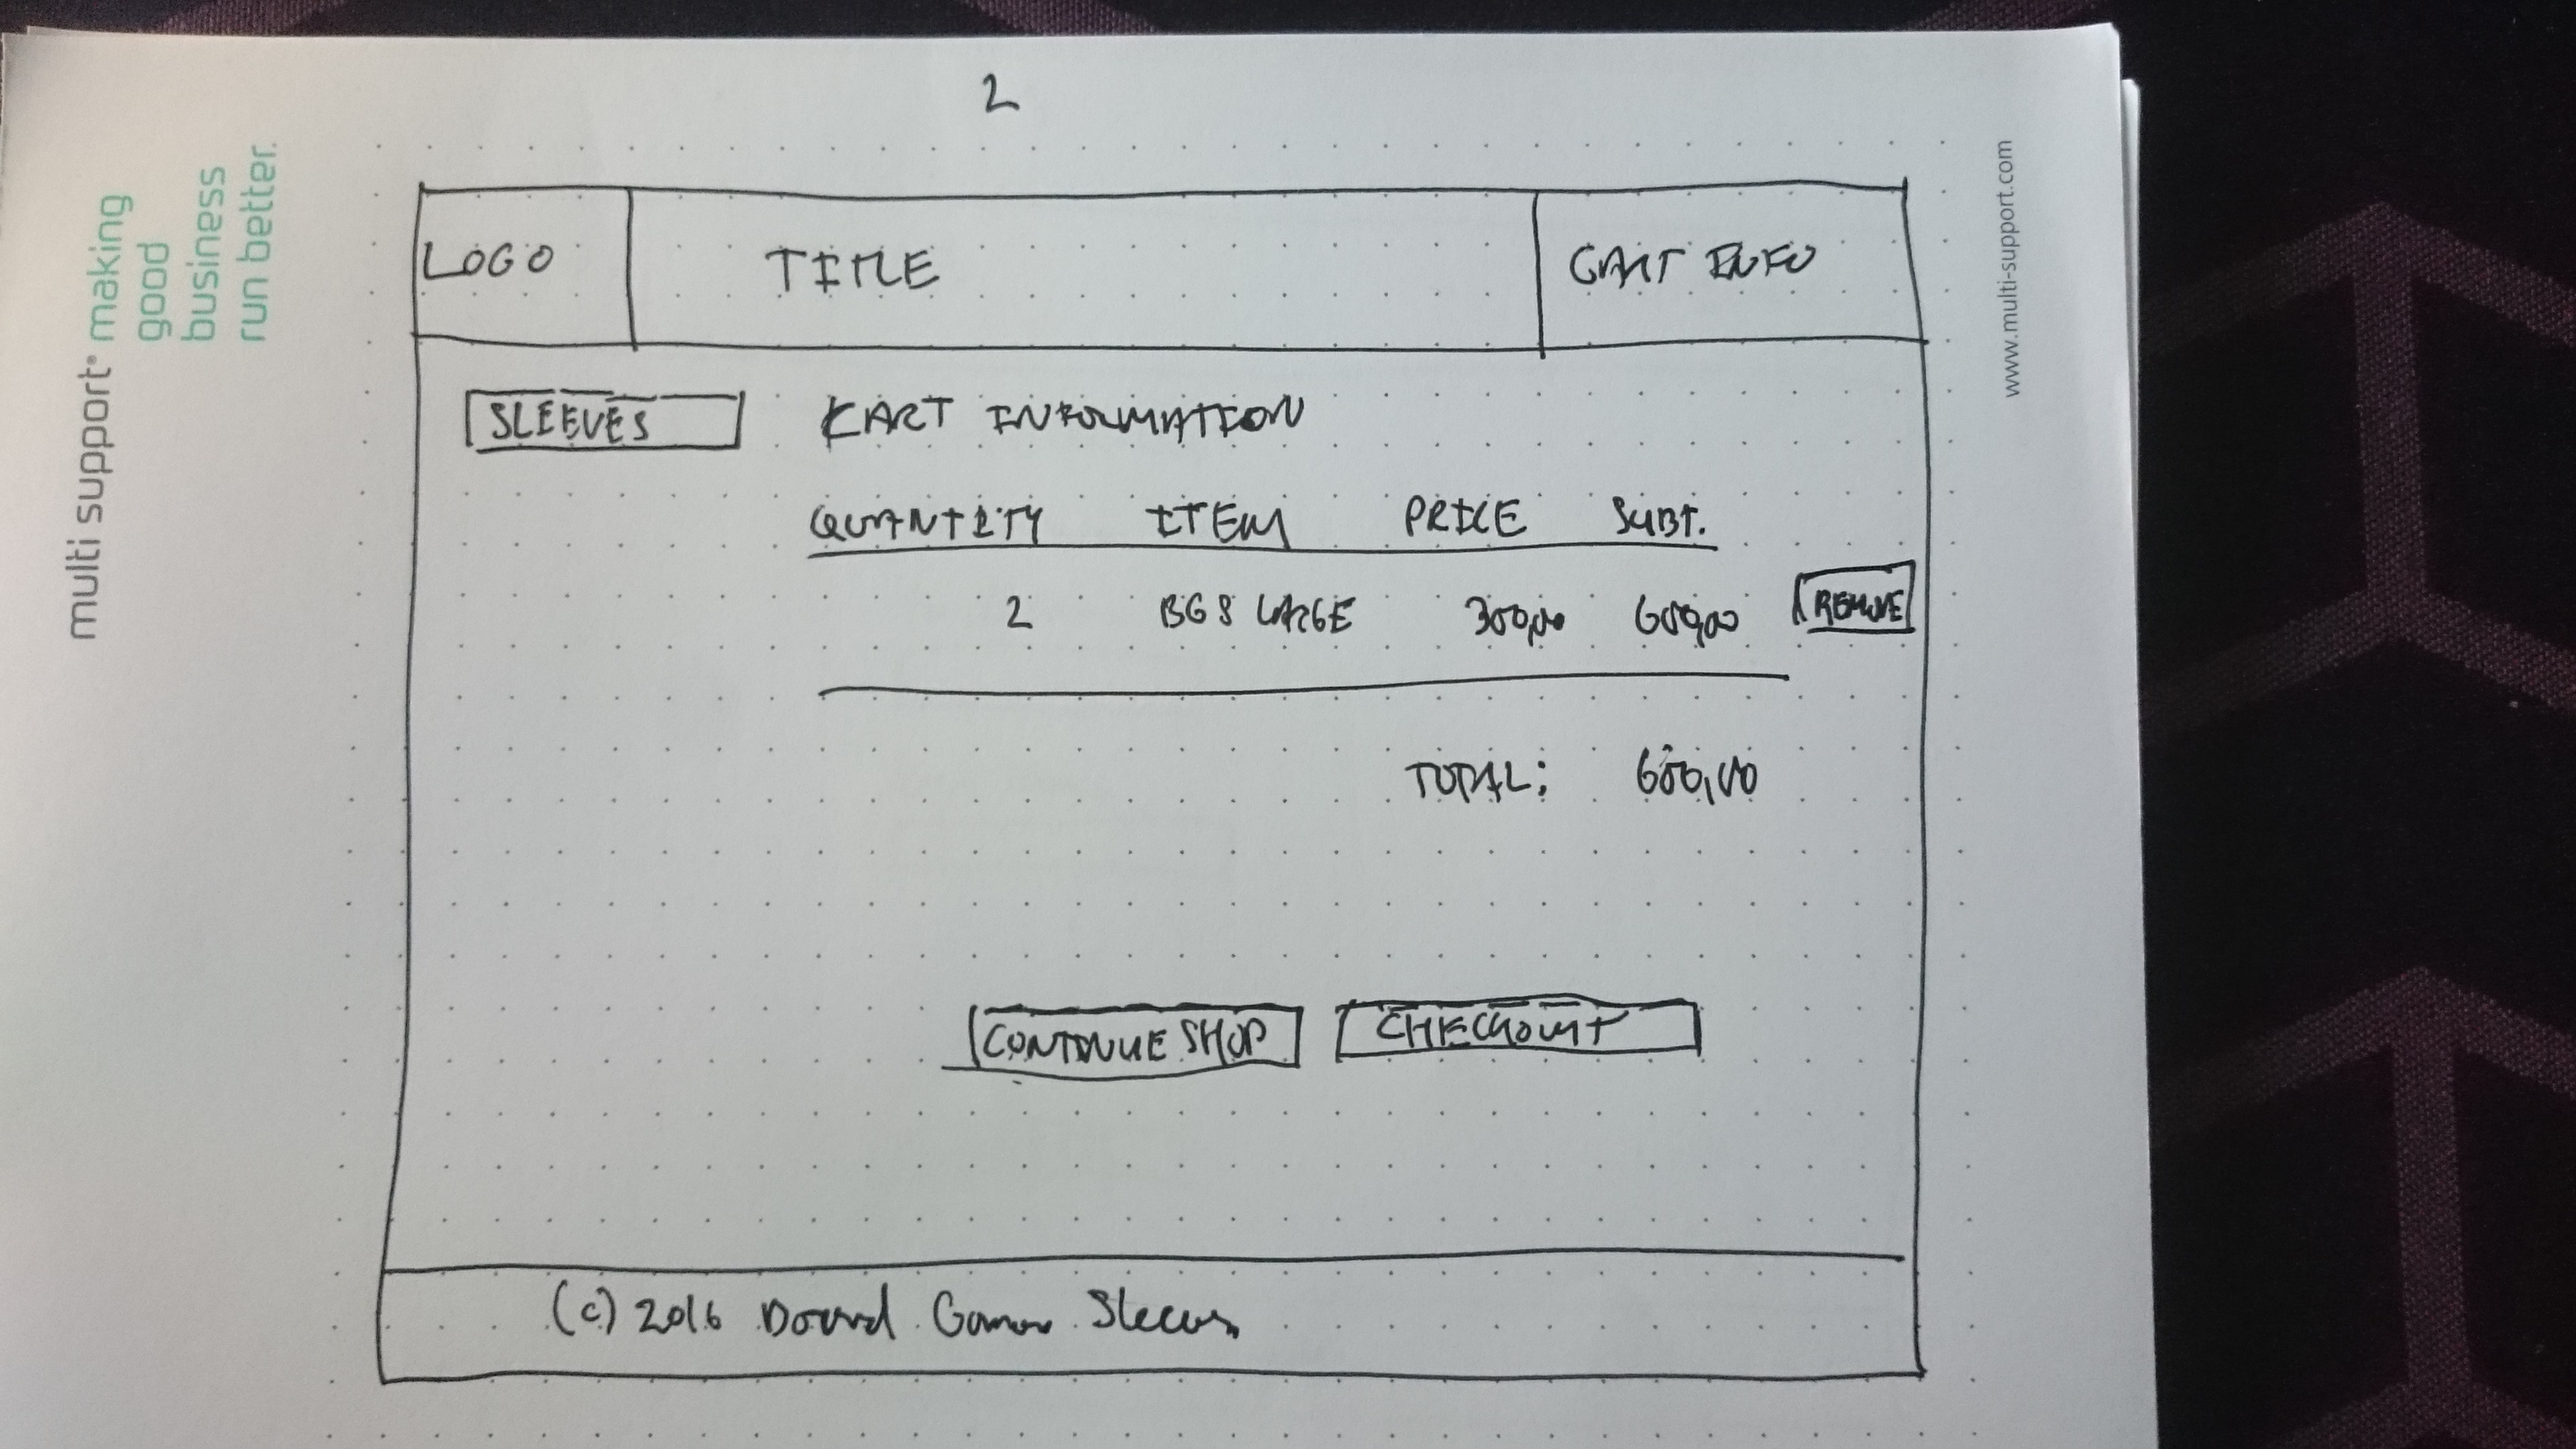 2
multi support® making
good
business
run better.
www.multi-support.com
LOGO TITLE CART INFO
SLEEVES CART INFORMATION
QUANTITY ITEM PRICE SUBT.
2 BGS LARGE 300,00 600,00 REMOVE
TOTAL: 600,00
CONTINUE SHOP CHECKOUT
(c) 2016 Board Game Sleeves